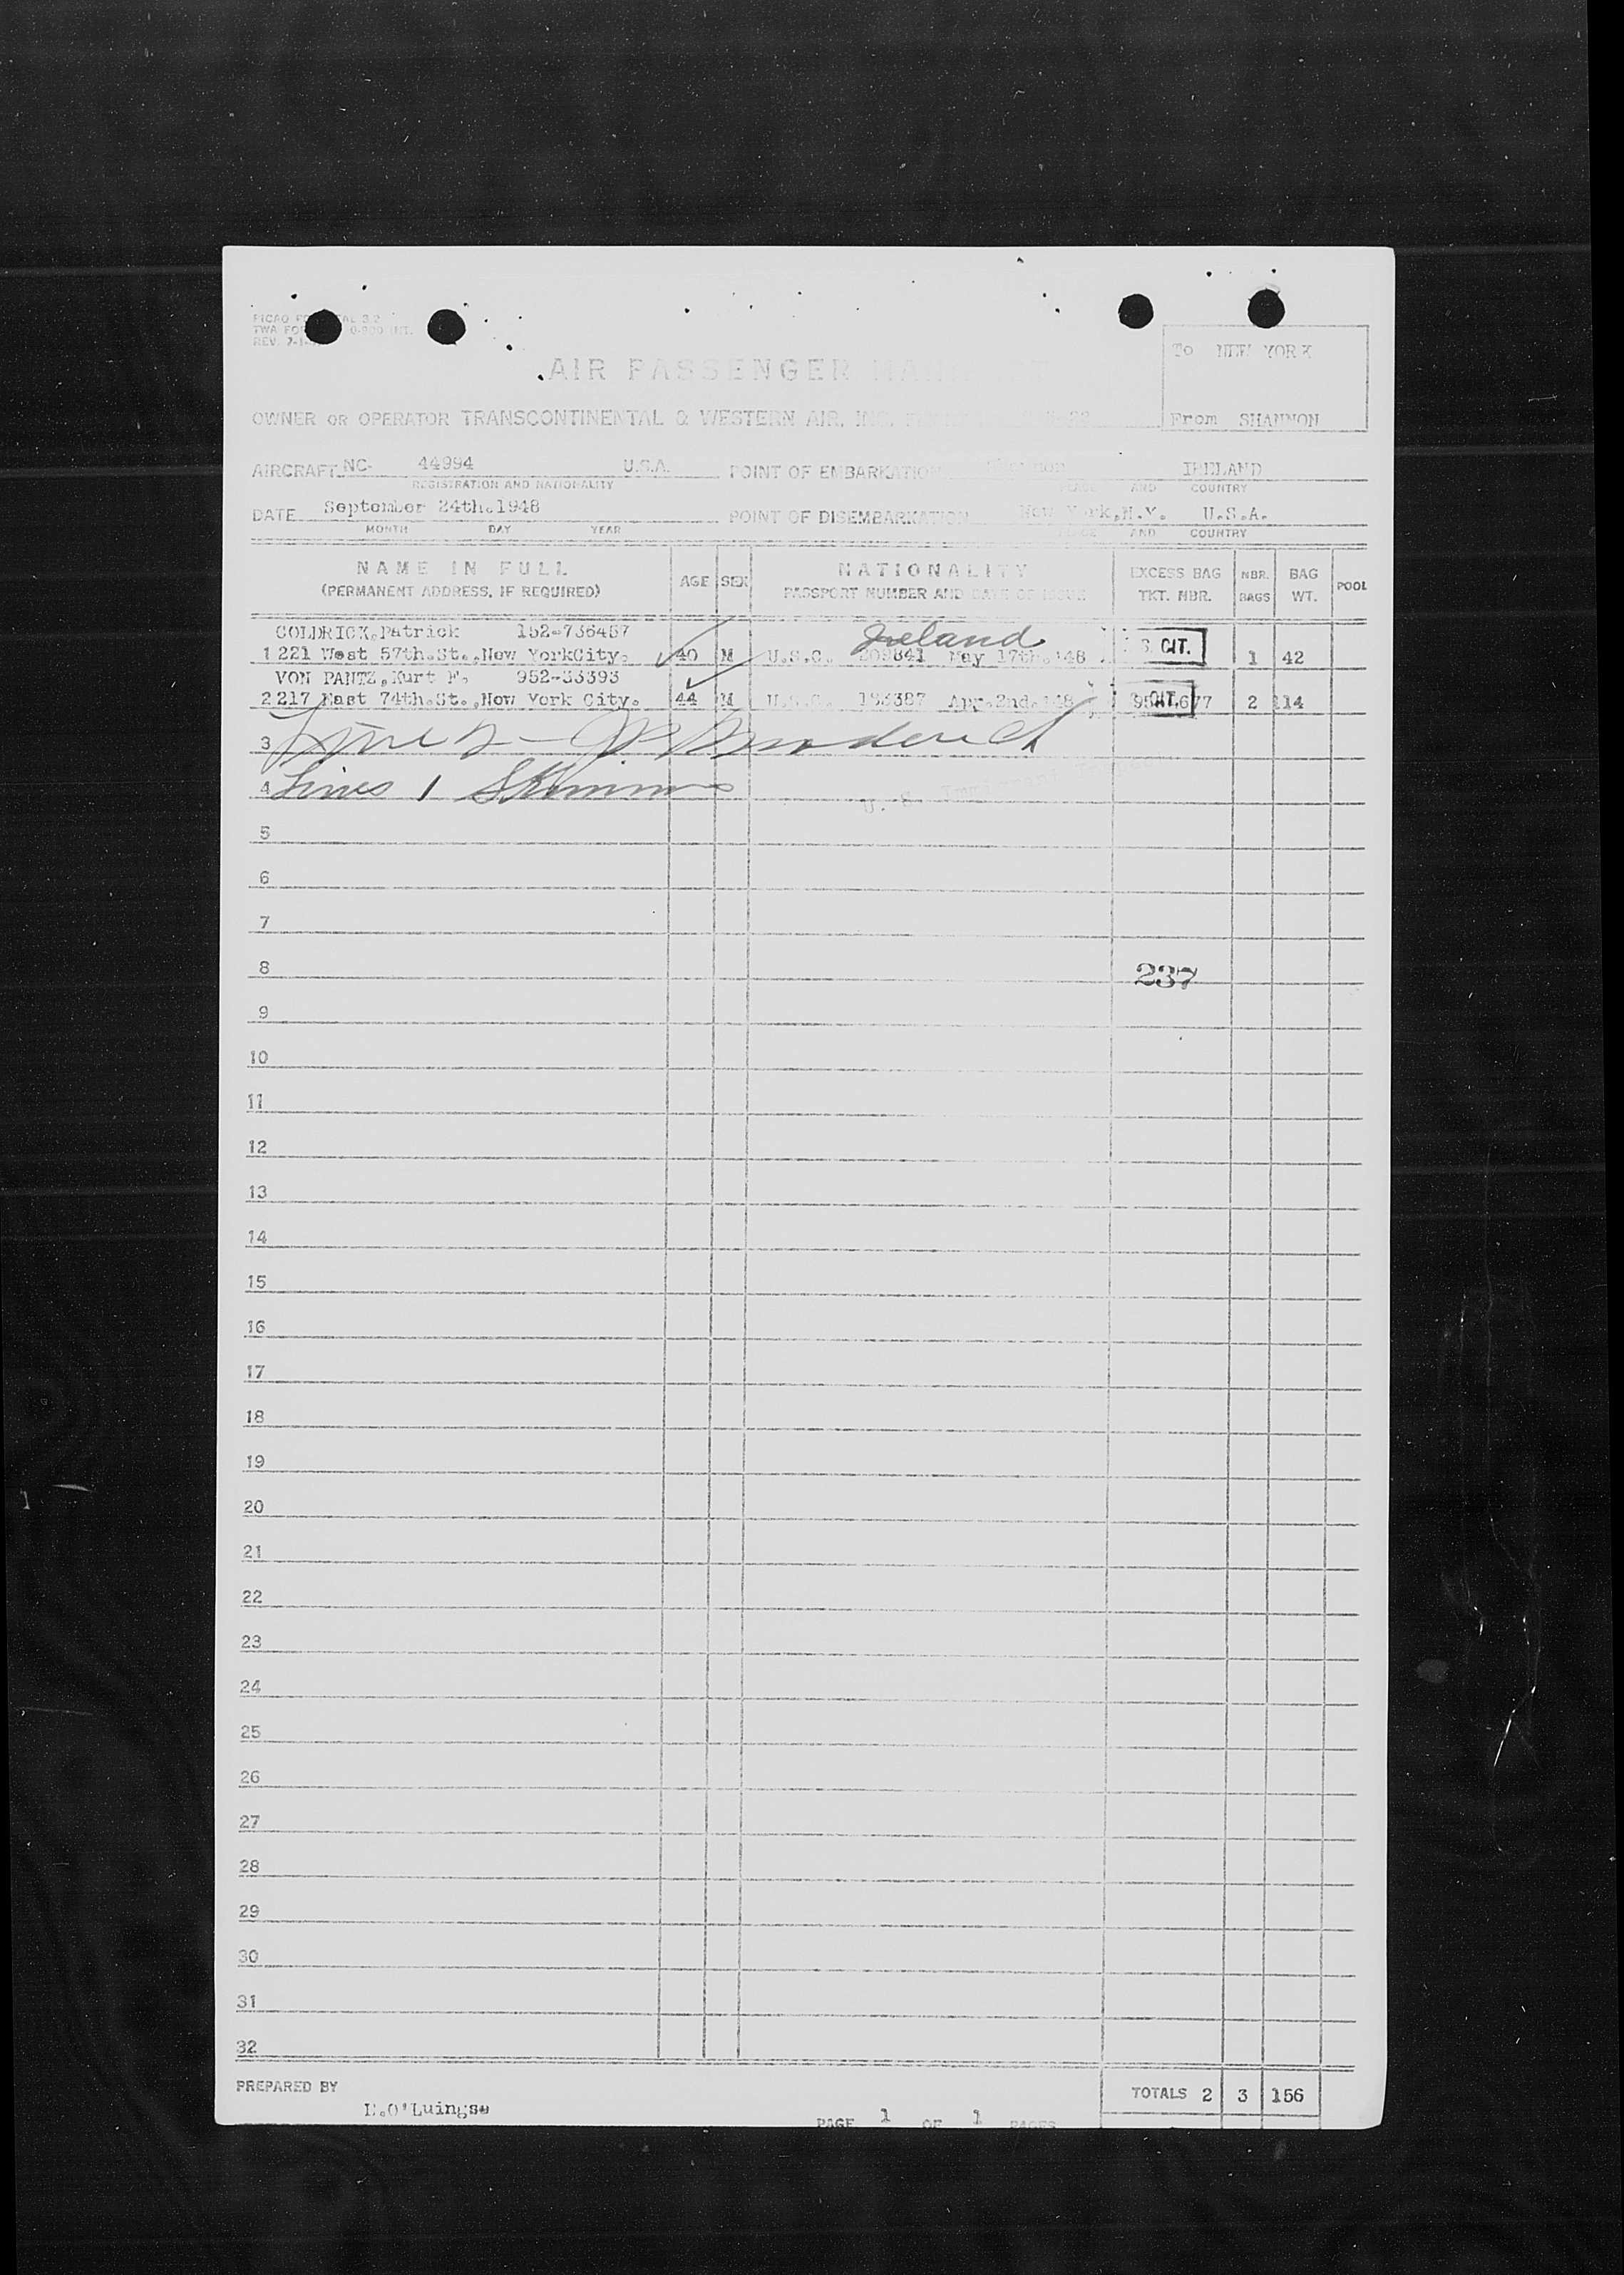 REV. 7-1-
To NEW YORK
AIR PASSENGER
OWNER OR OPERATOR TRANSCONTINENTAL & WESTERN AIR, INC.
From SHANNON
AIRCRAFT NC- 44994 U.S.A. POINT OF EMBARKATION IRELAND
REGISTRATION AND NATIONALITY PLACE AND COUNTRY
DATE September 24th.1948 POINT OF DISEMBARKATION New York,N.Y. U.S.A.
MONTH DAY YEAR PLACE AND COUNTRY
NAME IN FULL AGE SEX NATIONALITY EXCESS BAG NBR. BAG POOL
(PERMANENT ADDRESS, IF REQUIRED) PASSPORT NUMBER AND DATE OF ISSUE TKT. NBR. BAGS WT.
COLDRICK,Patrick 152-736457 Ireland
1 221 West 57th.St.,New YorkCity. 40 M U.S.C. 209841 May 17th.'48 S. CIT. 1 42
VON PANTZ,Kurt F. 952-33393
2 217 East 74th.St.,New York City. 44 M U.S.C. 183387 Apr.2nd.'48 CIT. 2 114
3
4 Lines 1
5
6
7
8 237
9
10
11
12
13
14
15
16
17
18
19
20
21
22
23
24
25
26
27
28
29
30
31
32
PREPARED BY TOTALS 2 3 156
PAGE 1 OF 1 PAGES